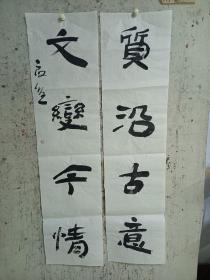 質沿古意
文變今情